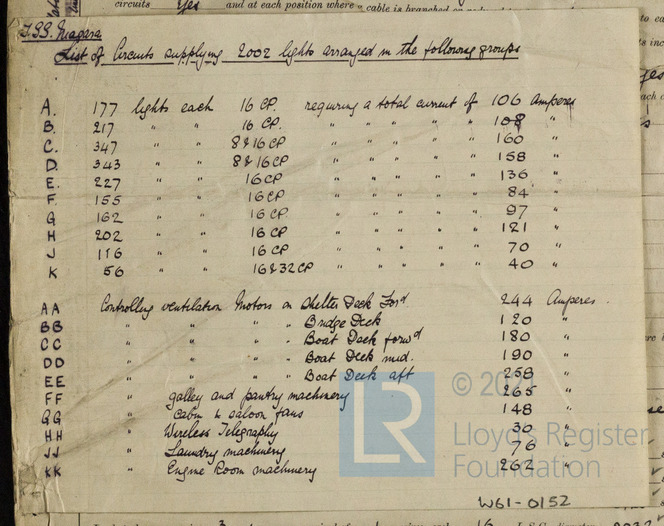 circuits Yes and at each position where a cable is branched
T.S.S. Niagara
List of Circuits supplying 2002 lights arranged in the following groups
A. 177 lights each 16 CP. requiring a total current of 106 Amperes
B. 217 " " 16 CP. " " " " " 108 "
C. 347 " " 8 & 16 CP " " " " " 160 "
D. 343 " " 8 & 16 CP " " " " " 158 "
E. 227 " " 16 CP " " " " " 136 "
F. 155 " " 16 CP " " " " " 84 "
G 162 " " 16 CP " " " " " 97 "
H 202 " " 16 CP " " " " " 121 "
J 116 " " 16 CP " " " " " 70 "
K 56 " " 16 & 32 CP " " " " " 40 "
AA Controlling ventilation Motors on Shelter Deck Ford 244 Amperes.
BB " " " " Bridge Deck 120 "
CC " " " " Boat Deck forwd 180 "
DD " " " " Boat Deck mid. 190 "
EE " " " " Boat Deck aft 258 "
FF " galley and pantry machinery 265 "
GG " Cabin & saloon fans 148 "
HH " Wireless Telegraphy 30 "
JJ " Laundry machinery 76 "
KK " Engine Room machinery 262 "
LR
Lloyd's Register
Foundation
W61-0152